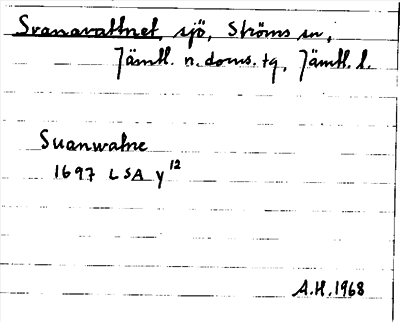 Svanavattnet, sjö, Ströms sn,
Jämtl. n. doms. tg, Jämtl. l.
Suanwatne
1697 LSA y 12
A.H. 1968